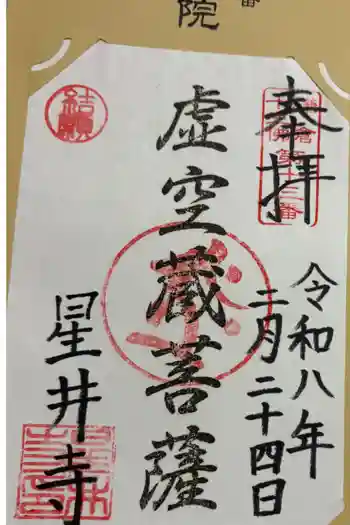 番
院
奉拝
令和八年
二月二十四日
虚空蔵菩薩
星井寺
結願